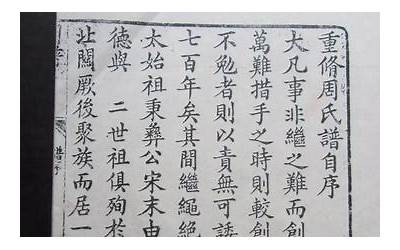 重脩周氏譜自序
大凡事非繼之難而創
萬難措手之時則較創
不勉者則以責無可諉
七百年矣其間繼繩絶
太始祖秉彝公宋末由
德與　二世祖俱殉於
北闕厥後聚族而居一